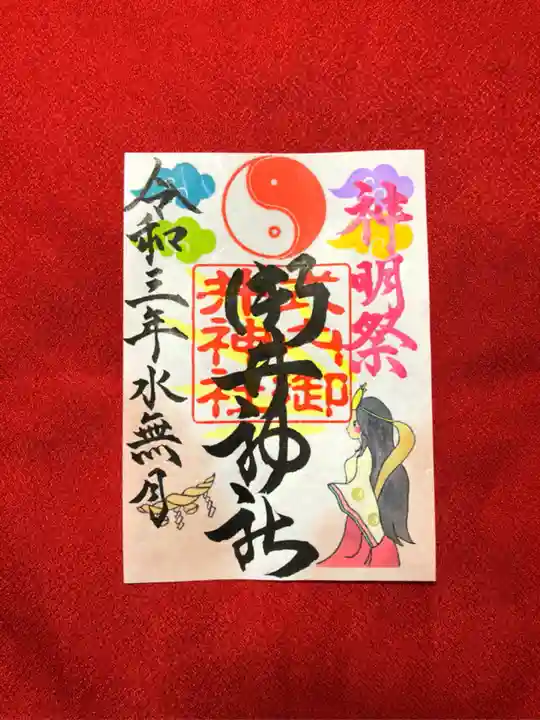 神明祭
御井神社
御
井神社
令和三年水無月